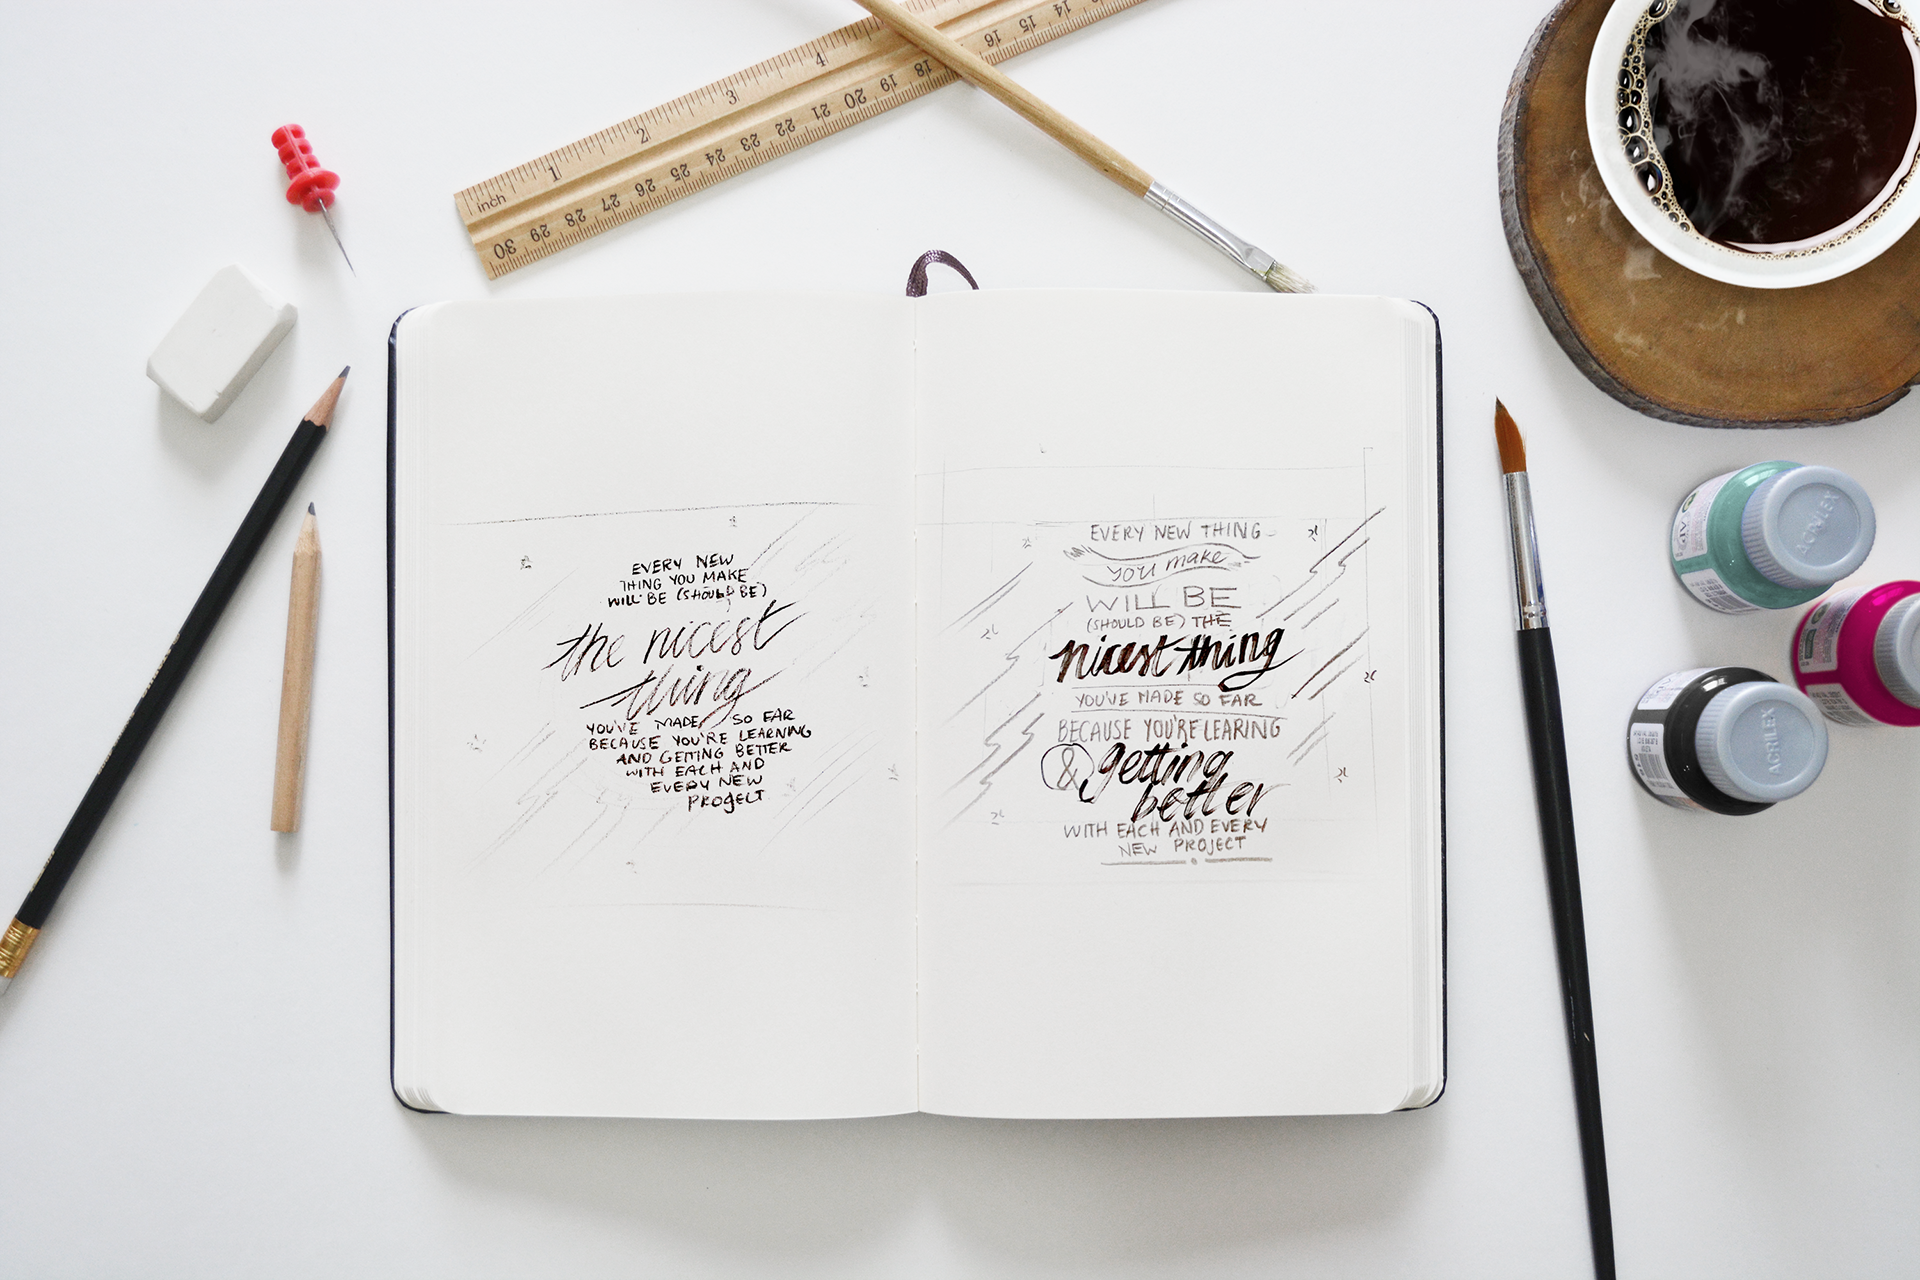 inch 1 2 3 4
30 29 28 27 26 25 24 23 22 21 20 19 18 16 15 14
EVERY NEW
THING YOU MAKE
WILL BE (SHOULD BE)
the nicest
thing
YOU'VE MADE SO FAR
BECAUSE YOU'RE LEARNING
AND GETTING BETTER
WITH EACH AND
EVERY NEW
PROJECT
EVERY NEW THING
you make
WILL BE
(SHOULD BE) THE
nicest thing
YOU'VE MADE SO FAR
BECAUSE YOU'RE LEARING
& getting
better
WITH EACH AND EVERY
NEW PROJECT
ACRILEX
ACRILEX